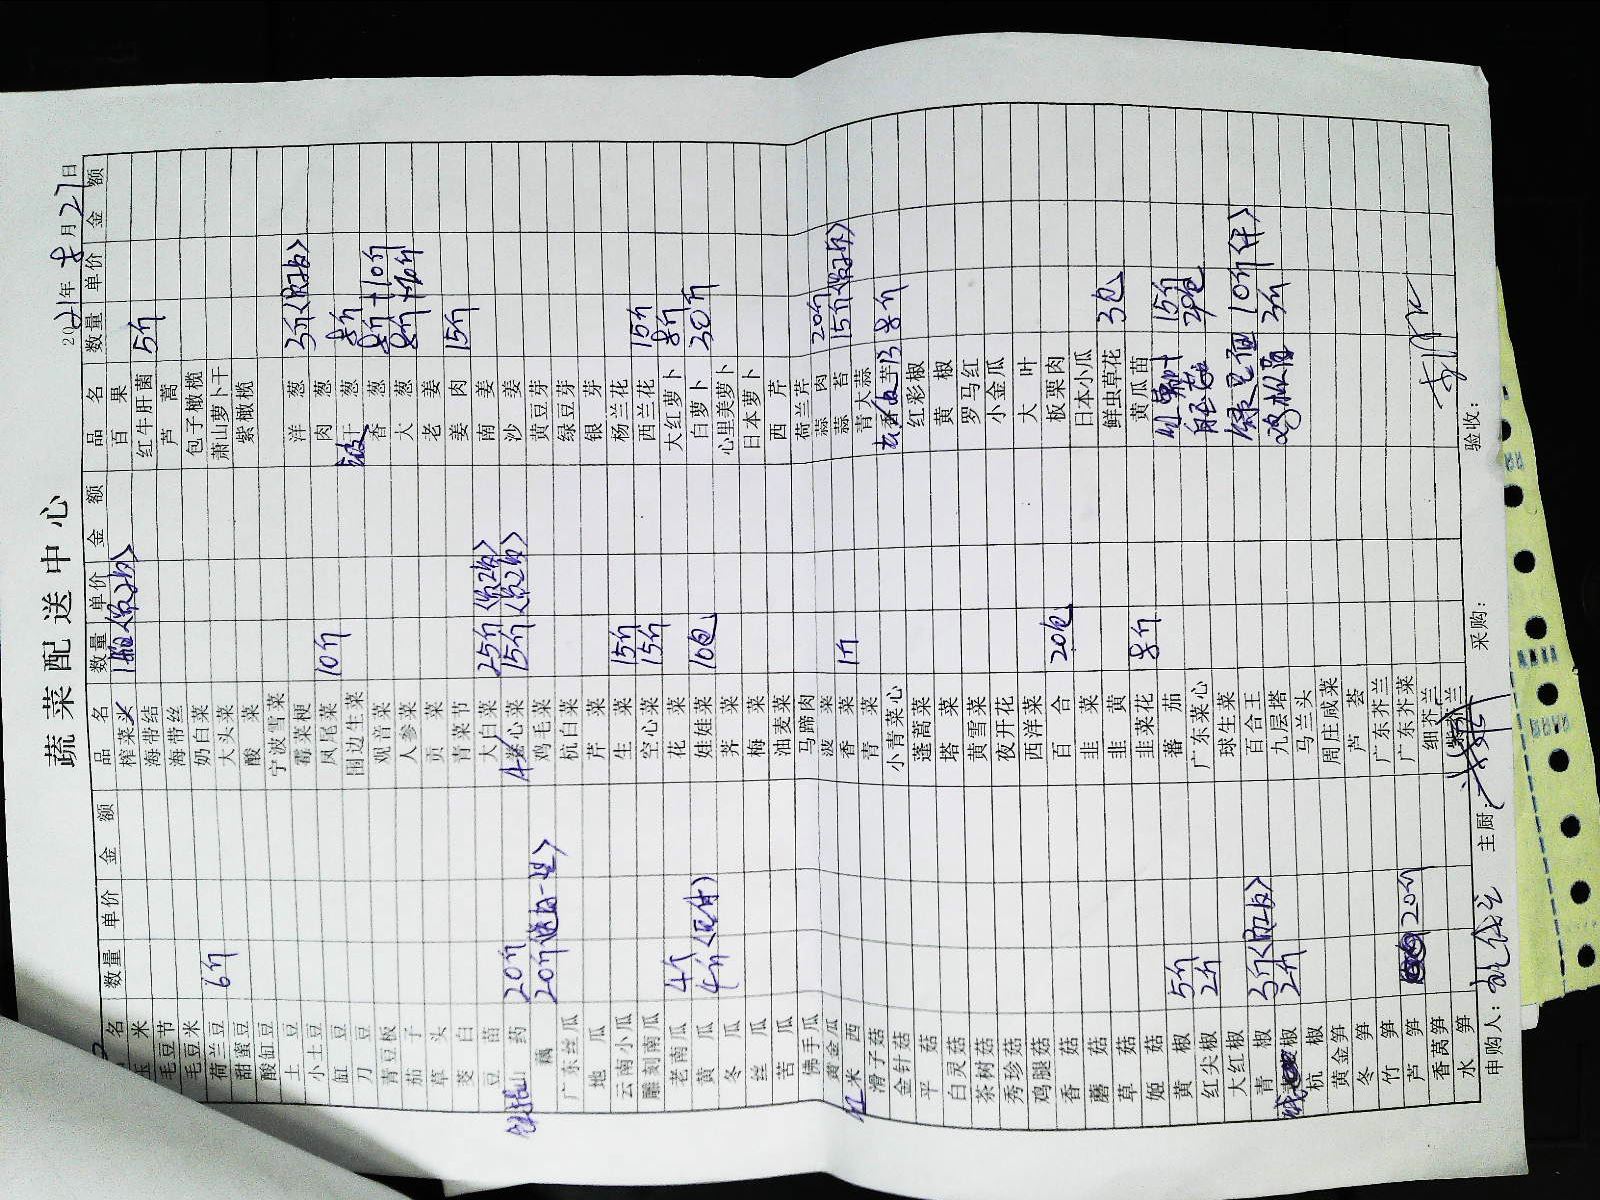 蔬菜配送中心
2021年8月27日
名 数量 单价 金额
玉米
毛豆节
毛豆米
荷兰豆 6斤
甜蜜豆
酸缸豆
土豆
小土豆
缸豆
刀豆
青豆板
茄子
草头
茭白
豆苗
山药 20斤
藕 20斤
广东丝瓜
地瓜
云南小瓜
雕刻南瓜
老南瓜 4个
黄瓜 4斤
冬瓜
丝瓜
苦瓜
佛手瓜
黄金瓜
米西
滑子菇
金针菇
平菇
白灵菇
茶树菇
秀珍菇
鸡腿菇
香菇
蘑菇
草菇
姬菇
黄椒 5斤
红尖椒 2斤
大红椒
青椒 3斤
椒 2斤
杭椒
黄金笋
冬笋
竹笋
芦笋 20斤
香莴笋
水笋
品名 数量 单价 金额
榨菜头
海带结
海带丝
奶白菜
大头菜
酸菜
宁波雪菜
霉菜梗
凤尾菜 10斤
围边生菜
观音菜
人参菜
贡菜
青菜节
大白菜 25斤
卷心菜 15斤
鸡毛菜
杭白菜
芹菜
生菜 15斤
空心菜 15斤
花菜
娃娃菜 10包
荠菜
梅菜
油麦菜
马蹄肉
菠菜
香菜 1斤
青菜
小青菜心
蓬蒿菜
塔菜
黄雪菜
夜开花
西洋菜
百合 20包
韭菜
韭黄
韭菜花 8斤
蕃茄
广东菜心
球生菜
百合王
九层塔
马兰头
周庄咸菜
芦荟
广东芥兰
广东芥菜
细芥兰
紫芥兰
品名 数量 单价 金额
百果
红牛肝菌 5斤
芦蒿
包子橄榄
萧山萝卜干
紫橄榄
洋葱 3斤
肉葱
干葱 8斤
香葱 8斤+10斤
大葱 8斤+10斤
老姜
姜肉 15斤
南姜
沙姜
黄豆芽
绿豆芽
银芽
杨兰花
西兰花 15斤
大红萝卜 8斤
白萝卜 30斤
心里美萝卜
日本萝卜
西芹
荷兰芹
蒜肉 20斤
蒜苔 15斤
青大蒜
去皮香芋 8斤
红彩椒
黄椒
罗马红
小金瓜
大叶
板栗肉
日本小瓜
鲜虫草花 3包
黄瓜苗
15斤
10斤
3斤
申购人：
主厨：
采购：
验收：